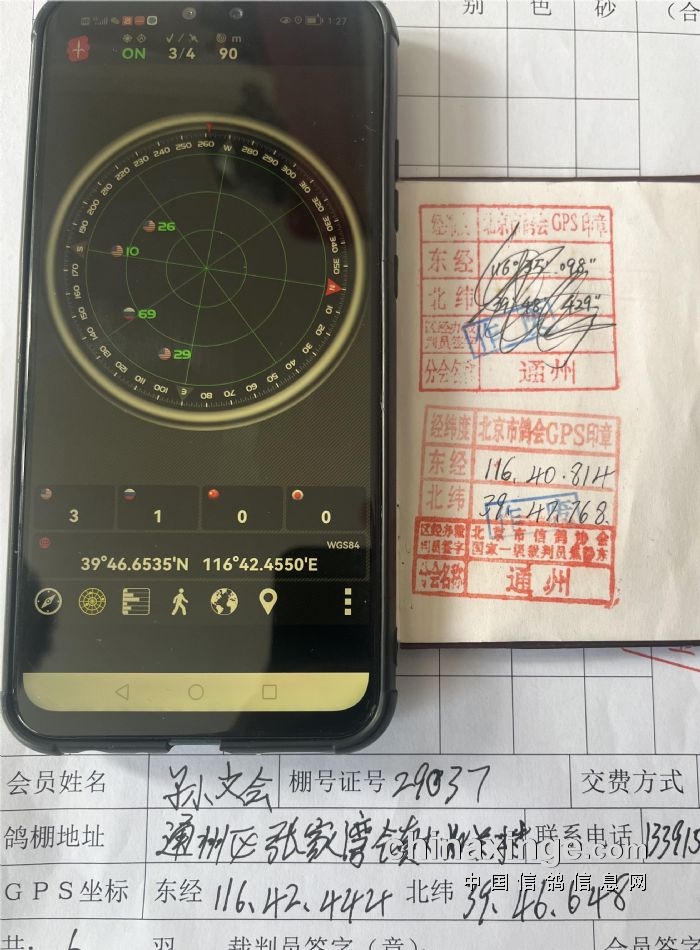 别 色 砂 （合
1:27
ON 3/4 90 m
W 280 290 300 310 320 330 340 350 N 10 20 30 40 50 60 70 80 E 100 110 120 130 140 150 160 170 S 190 200 210 220 230 240 250 260
26
10
69
29
3 1 0 0
WGS84
39°46.6535'N 116°42.4550'E
北京市鸽会GPS印章
东经 116° 35' .098"
北纬 39° 48' 429"
分会名称 通州
经纬度 北京市鸽会GPS印章
东经 116.40.814
北纬 39.47.768.
北京市信鸽协会
国家一级裁判员
分会名称 通州
会员姓名 孙文会 棚号证号 29037 交费方式
鸽棚地址 通州区张家湾镇 联系电话 133915
chinaxinge.com
中国信鸽信息网
GPS坐标 东经 116.42.444 北纬 39.46.648
共: 6 羽 裁判员签字（章） 会员签字